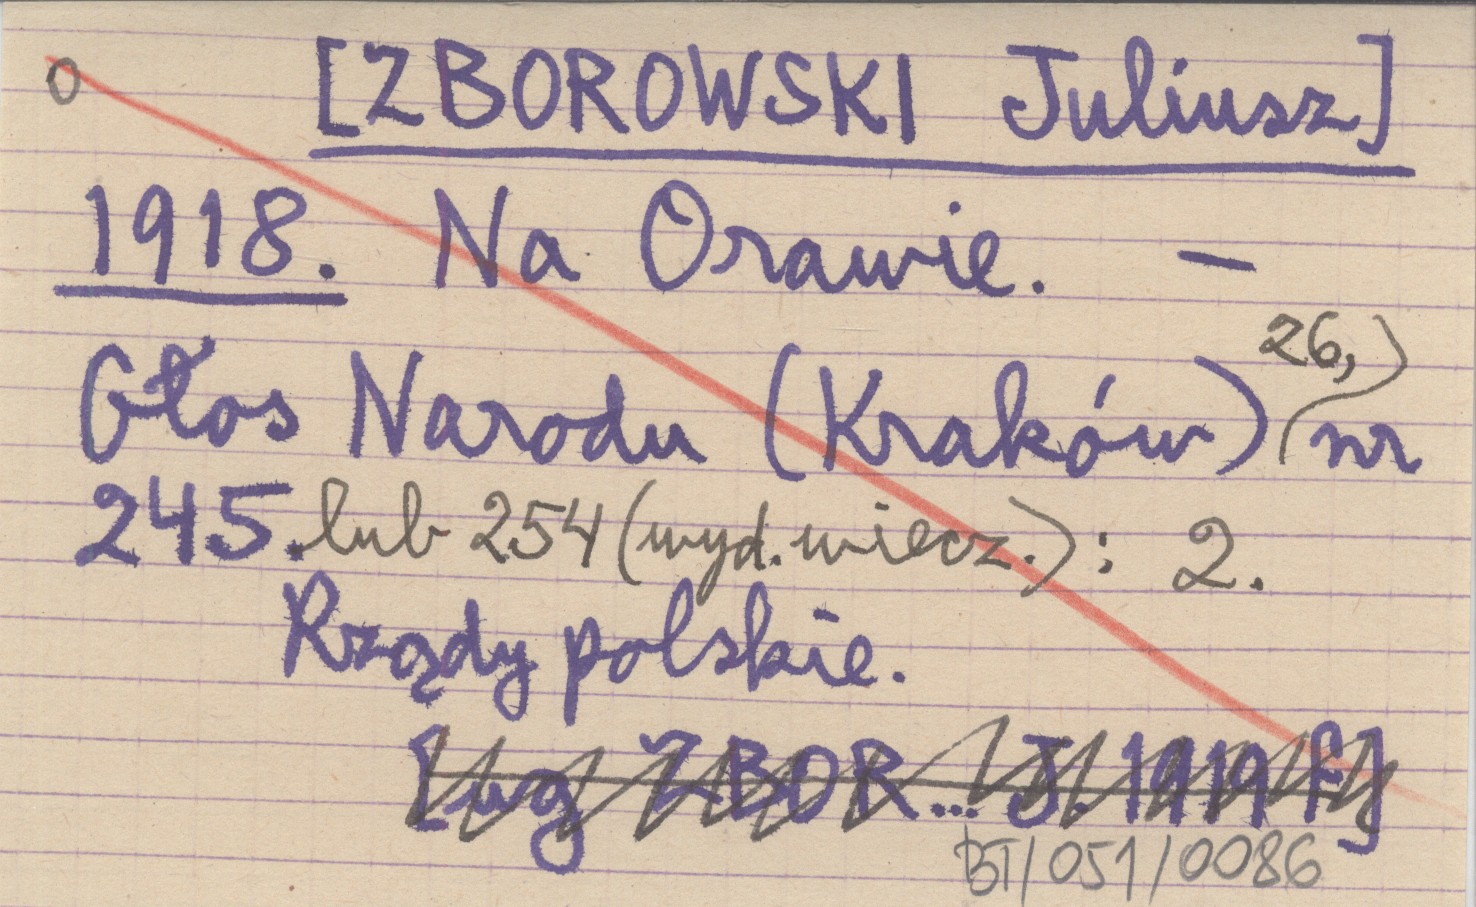 0 [ZBOROWSKI Juliusz]
1918. Na Orawie. –
Głos Narodu (Kraków) 26, nr
245. lub 254 (wyd. wiecz.): 2.
Rządy polskie.
[wg ZBOR... J. 1919 f]
BT/051/0086